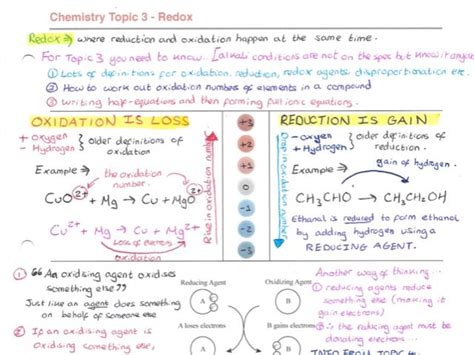 Chemistry Topic 3 - Redox
Redox ⇒ where reduction and oxidation happen at the same time.
For Topic 3 you need to know... [alkali conditions are not on the spec but know it anyway
① Lots of definitions for oxidation, reduction, redox agents, disproportionation etc.
② How to work out oxidation numbers of elements in a compound
③ Writing half-equations and then forming full ionic equations.
OXIDATION IS LOSS
+ Oxygen
- Hydrogen } Older definitions of oxidation
Example ⇒ the oxidation number.
CuO²⁺ + Mg → Cu + MgO²⁺
Cu²⁺ + Mg → Cu + Mg²⁺
Loss of electrons
oxidation
Rise in oxidation number
+3
+2
+1
0
-1
-2
-3
Drop in oxidation number
REDUCTION IS GAIN
- oxygen
+ Hydrogen } Older definitions of reduction.
gain of hydrogen.
Example ⇒
CH₃CHO → CH₃CH₂OH
Ethanal is reduced to form ethanol
by adding hydrogen using a
REDUCING AGENT.
① "An oxidising agent oxidises
something else"
Just like an agent does something
on behalf of someone else
② If an oxidising agent is
Reducing Agent
Oxidizing Agent
A
B
A loses electrons
B gains electrons
Another way of thinking...
① reducing agents reduce
something else (making it
gain electrons)
② ∴ the reducing agent must
be donating electrons.
INFO FROM TOPIC